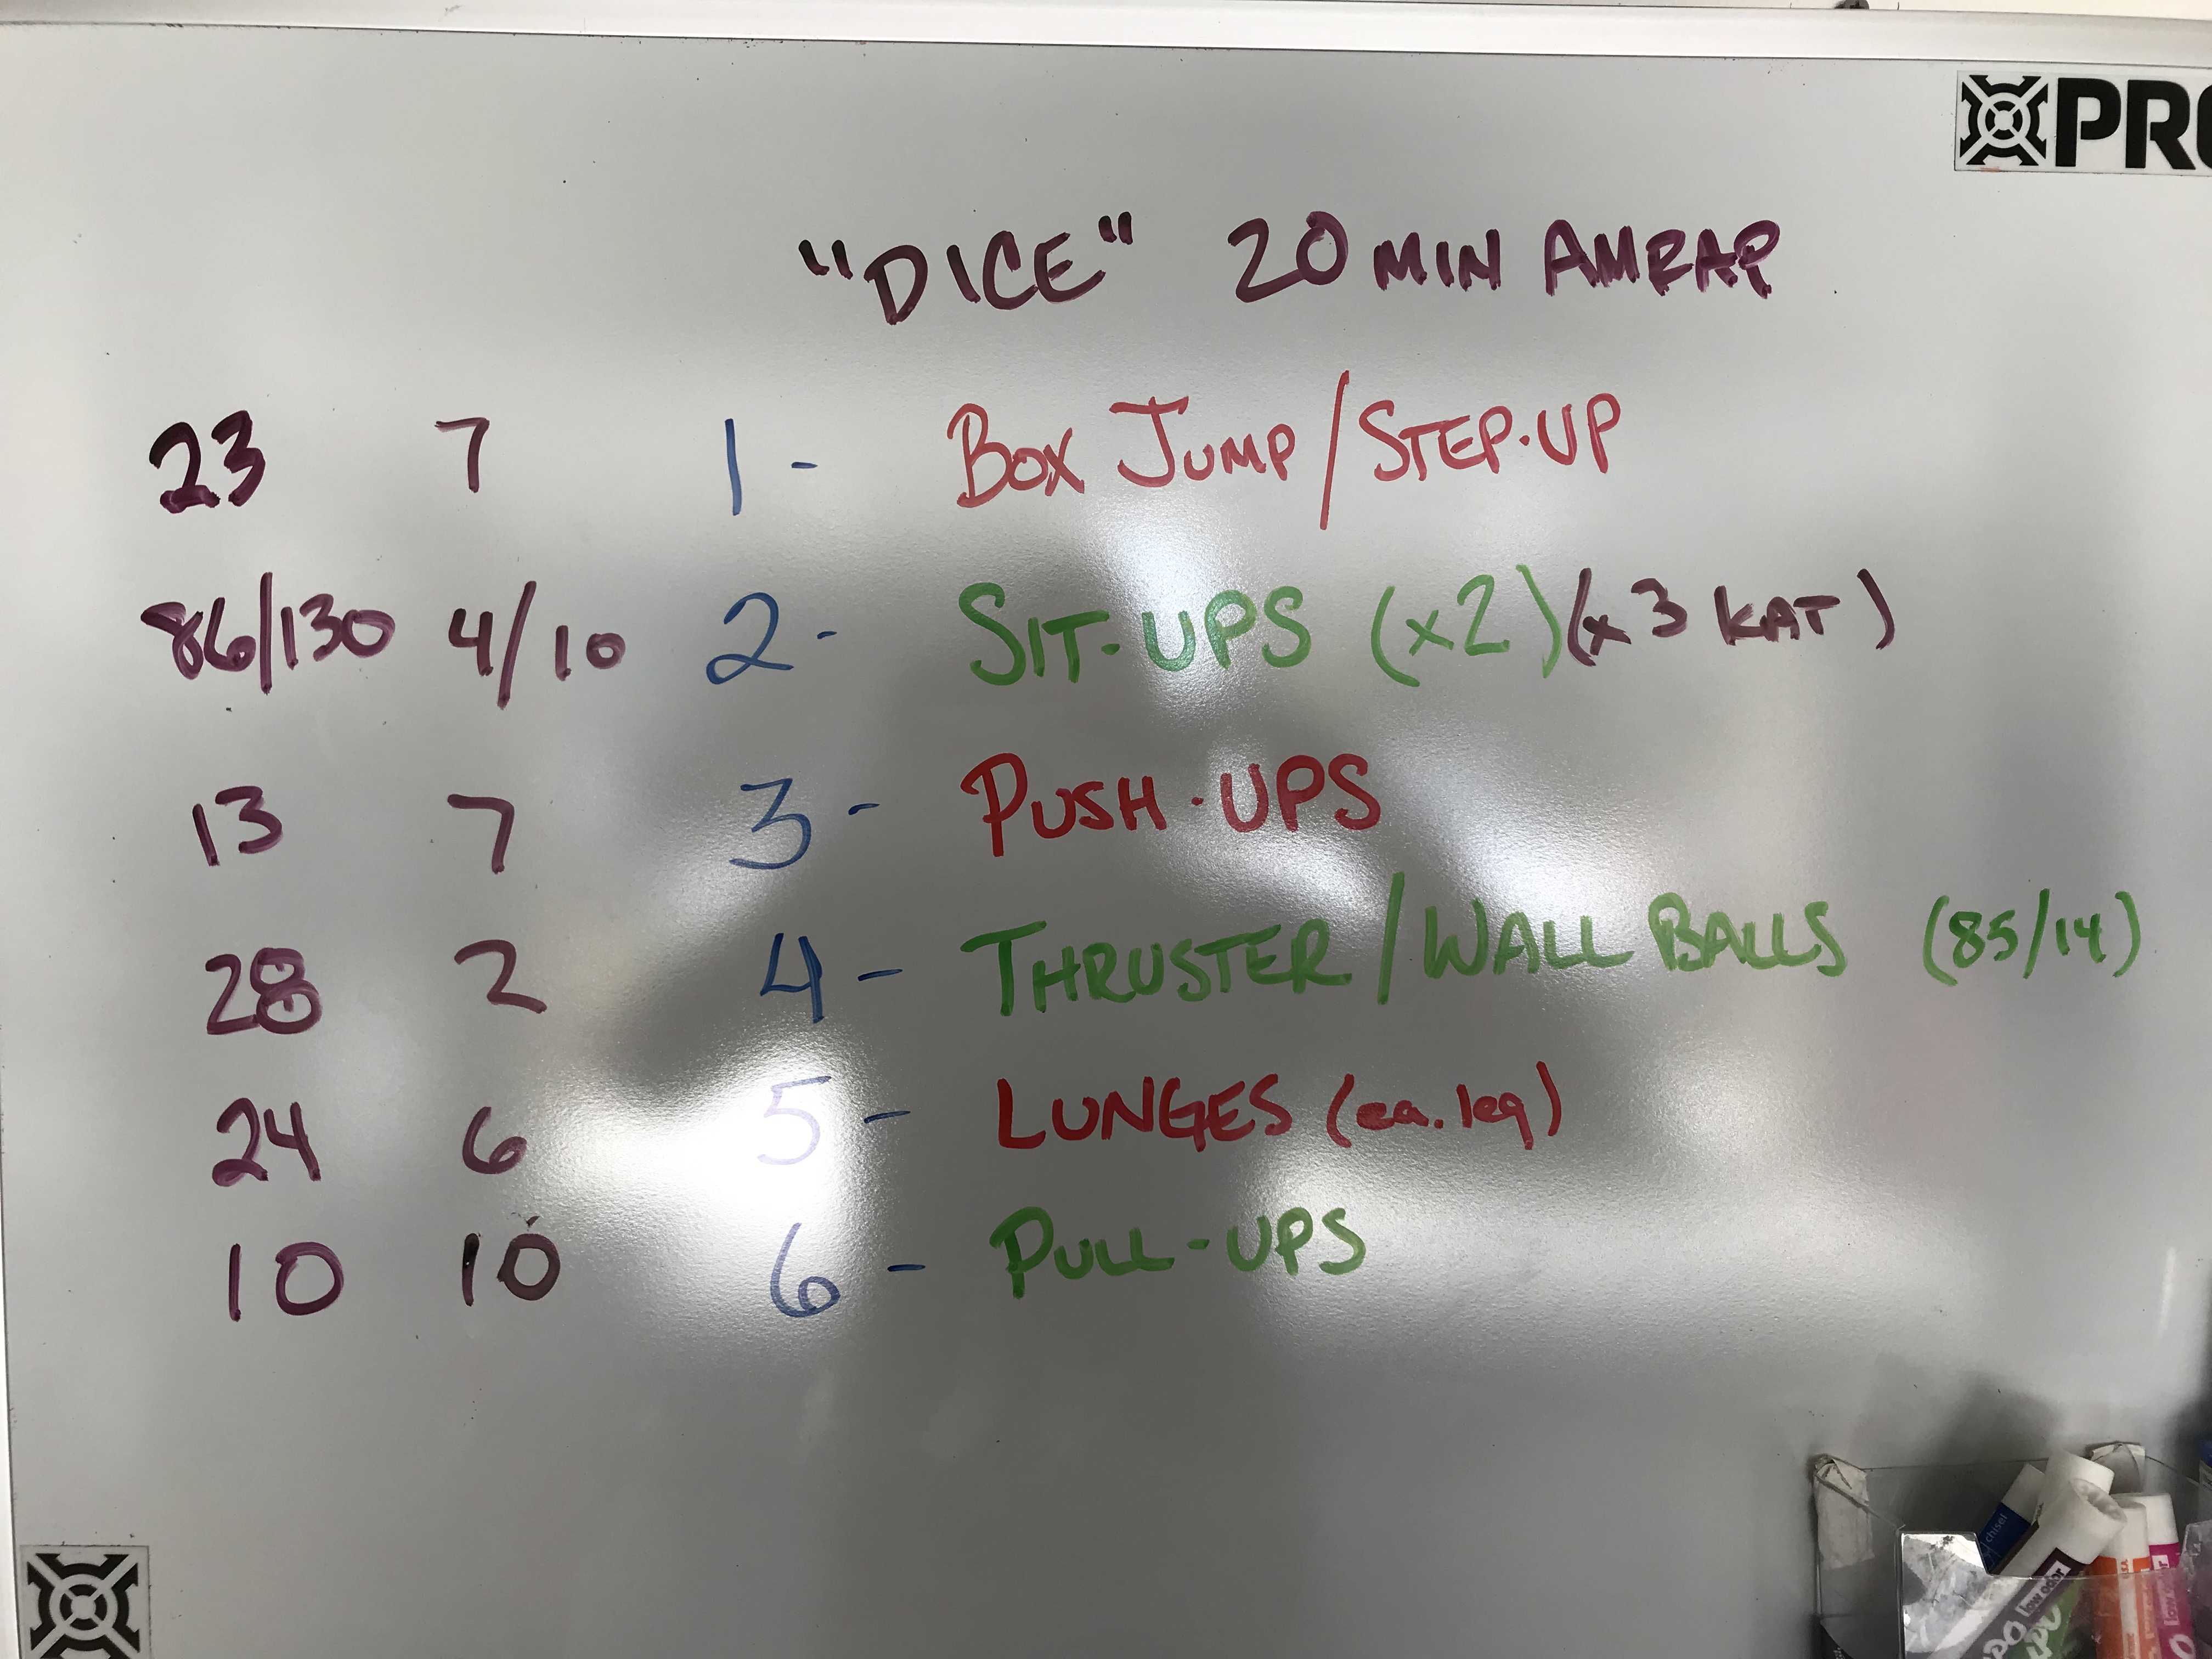 PRO
"DICE" 20 MIN AMRAP
23 7 1 - BOX JUMP/STEP-UP
86/130 4/10 2 - SIT-UPS (x2) (x3 KAT)
13 7 3 - PUSH-UPS
28 2 4 - THRUSTER/WALL BALLS (85/14)
24 6 5 - LUNGES (ea. leg)
10 10 6 - PULL-UPS
chisel
low odor